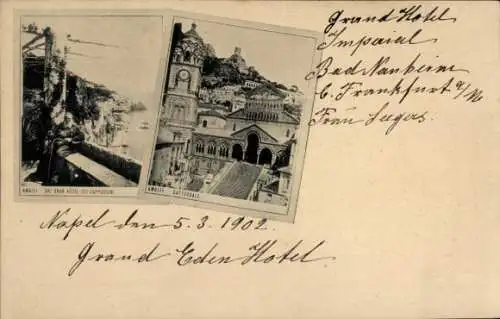 Grand Hotel
Imperial
Bad Nauheim
b. Frankfurt a/M
Frau Seegers.
AMALFI - DAL GRAN HÔTEL DEI CAPPUCCINI
AMALFI CATTEDRALE
Napel den 5.3.1902.
Grand Eden Hotel